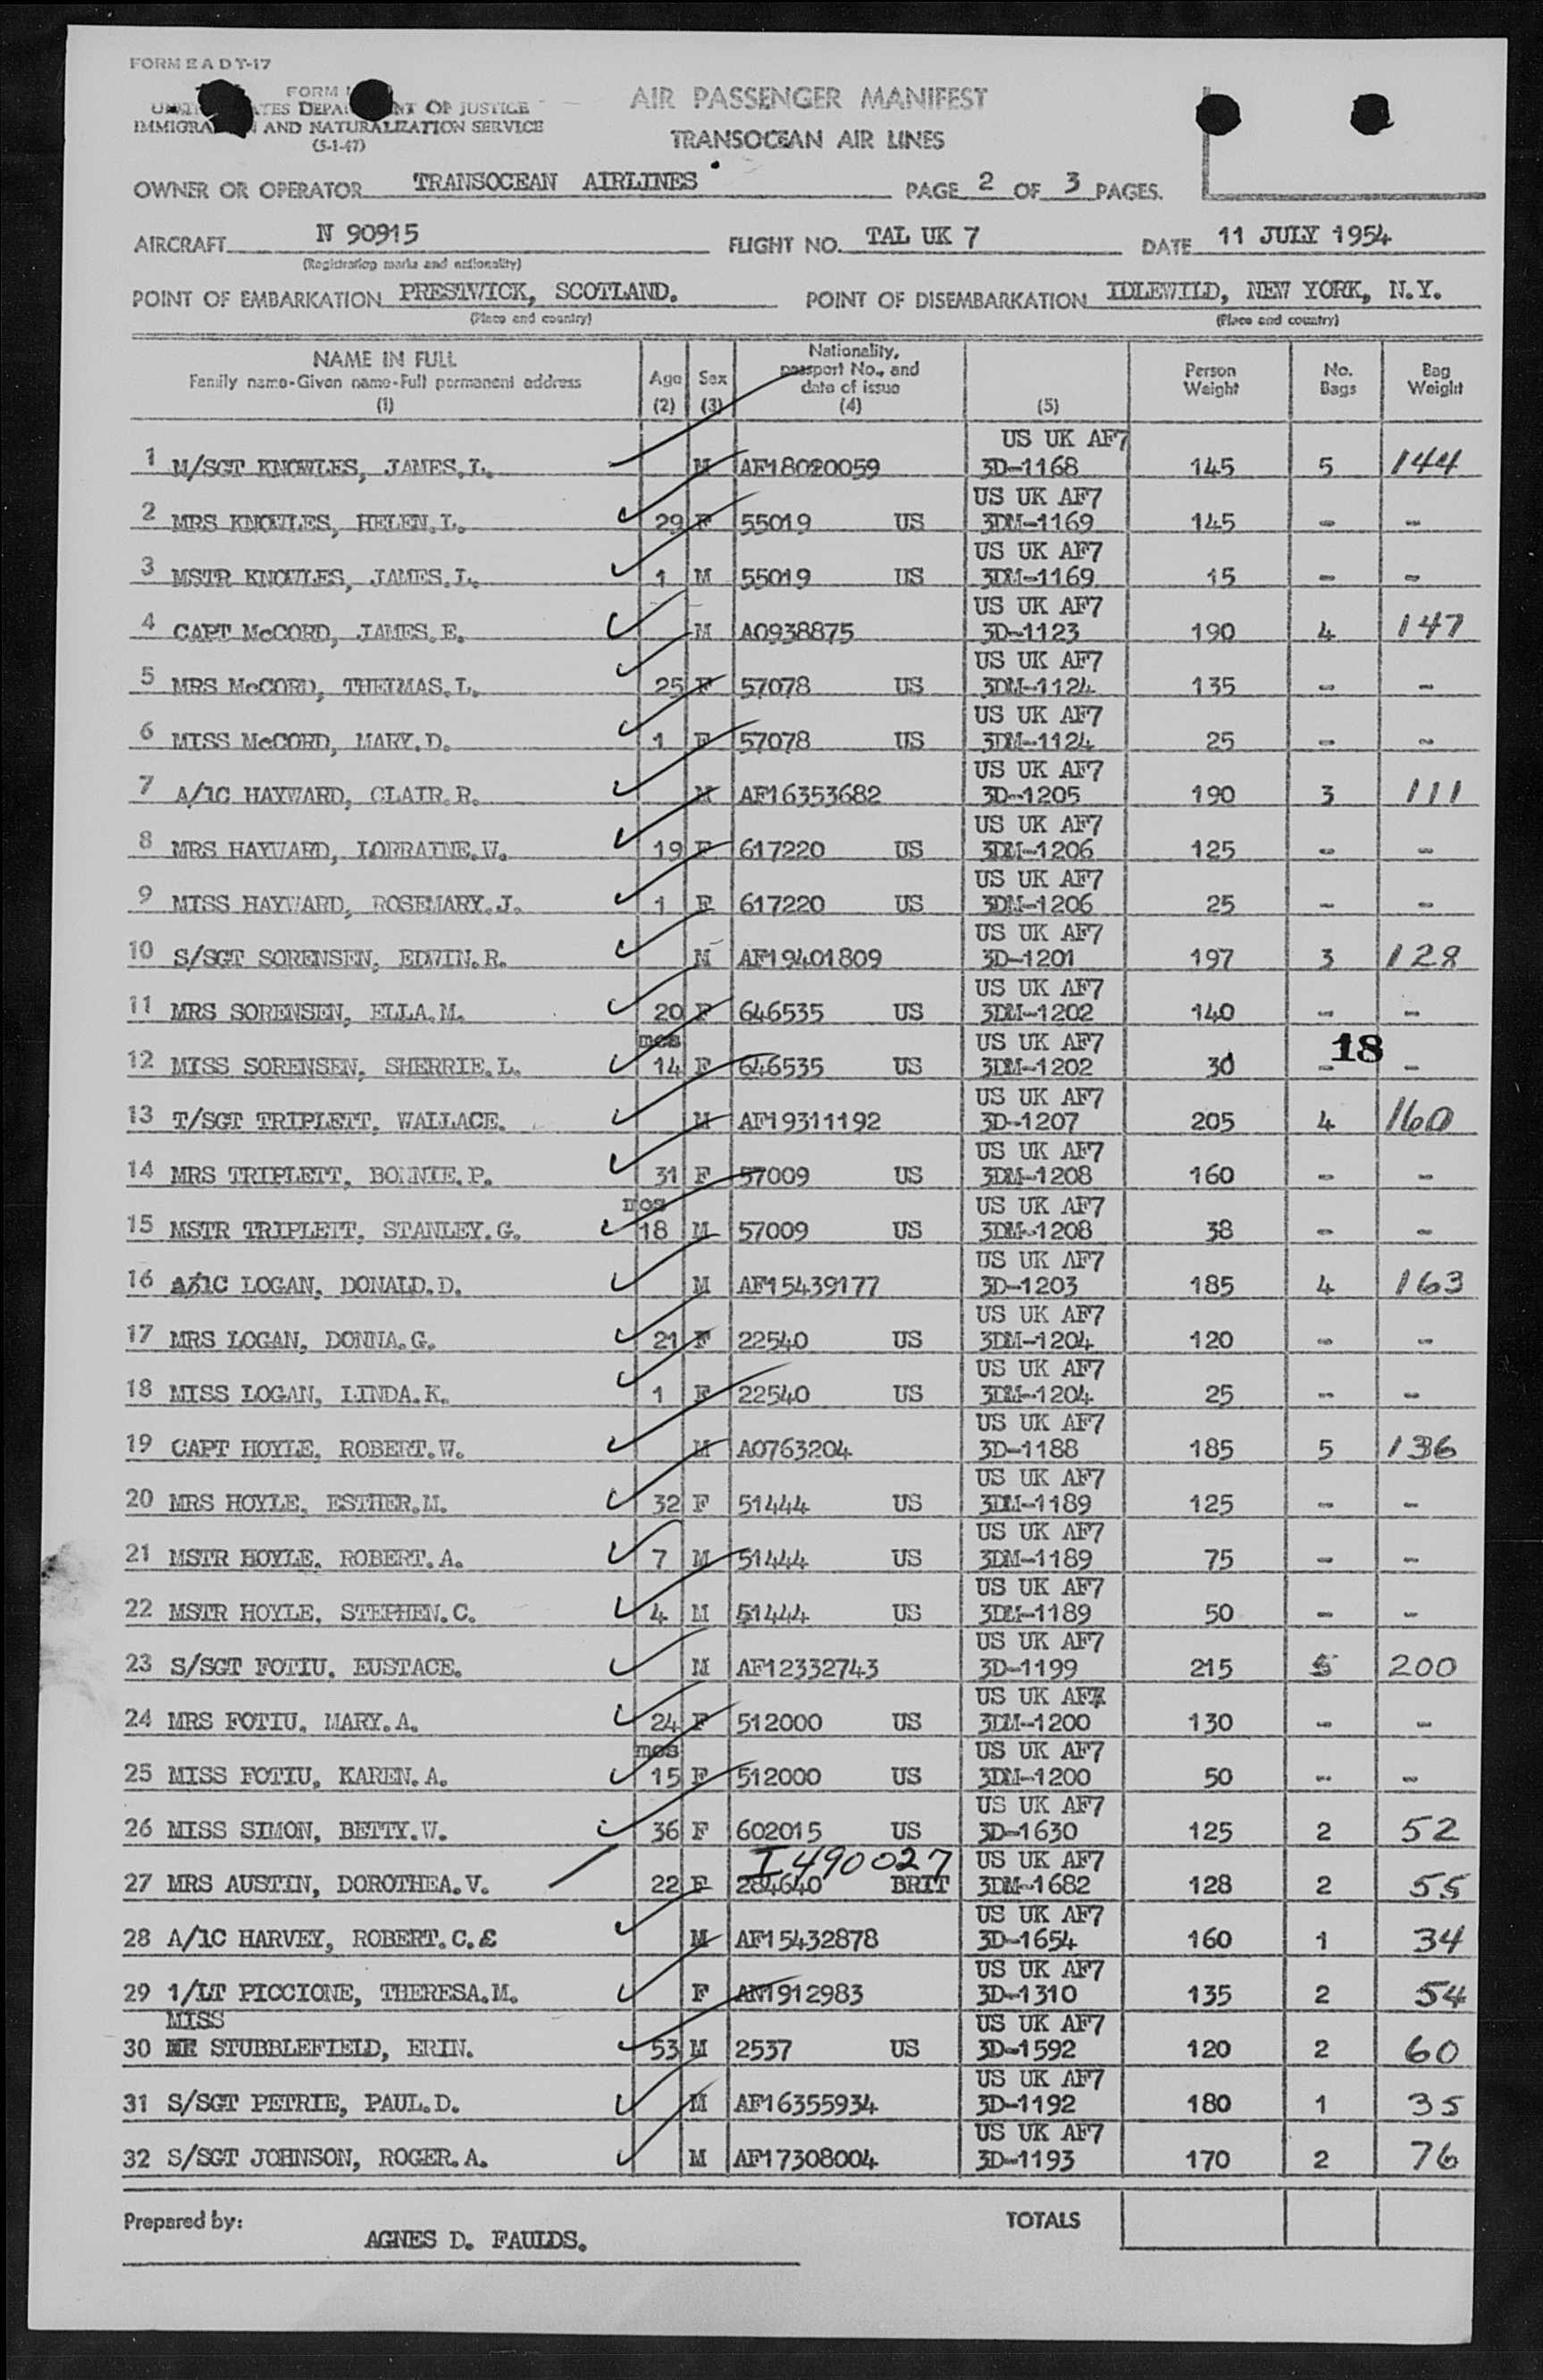 FORM E A D T-17
FORM
DEPARTMENT OF JUSTICE
IMMIGRATION AND NATURALIZATION SERVICE
(5-1-47)
AIR PASSENGER MANIFEST
TRANSOCEAN AIR LINES
OWNER OR OPERATOR TRANSOCEAN AIRLINES PAGE 2 OF 3 PAGES.
AIRCRAFT N 90915 FLIGHT NO. TAL UK 7 DATE 11 JULY 1954
(Registration marks and nationality)
POINT OF EMBARKATION PRESTWICK, SCOTLAND. POINT OF DISEMBARKATION IDLEWILD, NEW YORK, N.Y.
(Place and country) (Place and country)
NAME IN FULL Age Sex Nationality, passport No., and date of issue Person Weight No. Bags Bag Weight
Family name-Given name-Full permanent address
(1) (2) (3) (4) (5)
US UK AF7
1 M/SGT KNOWLES, JAMES.L. M AF18020059 3D-1168 145 5 144
US UK AF7
2 MRS KNOWLES, HELEN.L. 29 F 55019 US 3DM-1169 145 - -
US UK AF7
3 MSTR KNOWLES, JAMES.L. 1 M 55019 US 3DM-1169 15 - -
US UK AF7
4 CAPT McCORD, JAMES.E. M AO938875 3D-1123 190 4 147
US UK AF7
5 MRS McCORD, THELMAS.L. 25 F 57078 US 3DM-1124 135 - -
US UK AF7
6 MISS McCORD, MARY.D. 1 F 57078 US 3DM-1124 25 - -
US UK AF7
7 A/1C HAYWARD, CLAIR.R. M AF16353682 3D-1205 190 3 111
US UK AF7
8 MRS HAYWARD, LORRAINE.W. 19 F 617220 US 3DM-1206 125 - -
US UK AF7
9 MISS HAYWARD, ROSEMARY.J. 1 F 617220 US 3DM-1206 25 - -
US UK AF7
10 S/SGT SORENSEN, EDWIN.R. M AF19401809 3D-1201 197 3 128
US UK AF7
11 MRS SORENSEN, ELLA.M. 20 F 646535 US 3DM-1202 140 - -
mos US UK AF7 18
12 MISS SORENSEN, SHERRIE.L. 14 F 646535 US 3DM-1202 30 - -
US UK AF7
13 T/SGT TRIPLETT, WALLACE. M AF19311192 3D-1207 205 4 160
US UK AF7
14 MRS TRIPLETT, BONNIE.P. 31 F 57009 US 3DM-1208 160 - -
mos US UK AF7
15 MSTR TRIPLETT, STANLEY.G. 18 M 57009 US 3DM-1208 38 - -
US UK AF7
16 A/1C LOGAN, DONALD.D. M AF15439177 3D-1203 185 4 163
US UK AF7
17 MRS LOGAN, DONNA.G. 21 F 22540 US 3DM-1204 120 - -
US UK AF7
18 MISS LOGAN, LINDA.K. 1 F 22540 US 3DM-1204 25 - -
US UK AF7
19 CAPT HOYLE, ROBERT.W. M AO763204 3D-1188 185 5 136
US UK AF7
20 MRS HOYLE, ESTHER.M. 32 F 51444 US 3DM-1189 125 - -
US UK AF7
21 MSTR HOYLE, ROBERT.A. 7 M 51444 US 3DM-1189 75 - -
US UK AF7
22 MSTR HOYLE, STEPHEN.C. 4 M 51444 US 3DM-1189 50 - -
US UK AF7
23 S/SGT FOTIU, EUSTACE. M AF12332743 3D-1199 215 5 200
US UK AF7
24 MRS FOTIU, MARY.A. 24 F 512000 US 3DM-1200 130 - -
mos US UK AF7
25 MISS FOTIU, KAREN.A. 15 F 512000 US 3DM-1200 50 - -
US UK AF7
26 MISS SIMON, BETTY.W. 36 F 602015 US 3D-1630 125 2 52
I 490027 US UK AF7
27 MRS AUSTIN, DOROTHEA.V. 22 F 284640 BRIT 3DM-1682 128 2 55
US UK AF7
28 A/1C HARVEY, ROBERT.C.£ M AF15432878 3D-1654 160 1 34
US UK AF7
29 1/LT PICCIONE, THERESA.M. F AN1912983 3D-1310 135 2 54
MISS US UK AF7
30 STUBBLEFIELD, ERIN. 53 M 2537 US 3D-1592 120 2 60
US UK AF7
31 S/SGT PETRIE, PAUL.D. M AF16355934 3D-1192 180 1 35
US UK AF7
32 S/SGT JOHNSON, ROGER.A. M AF17308004 3D-1193 170 2 76
Prepared by: TOTALS
AGNES D. FAULDS.